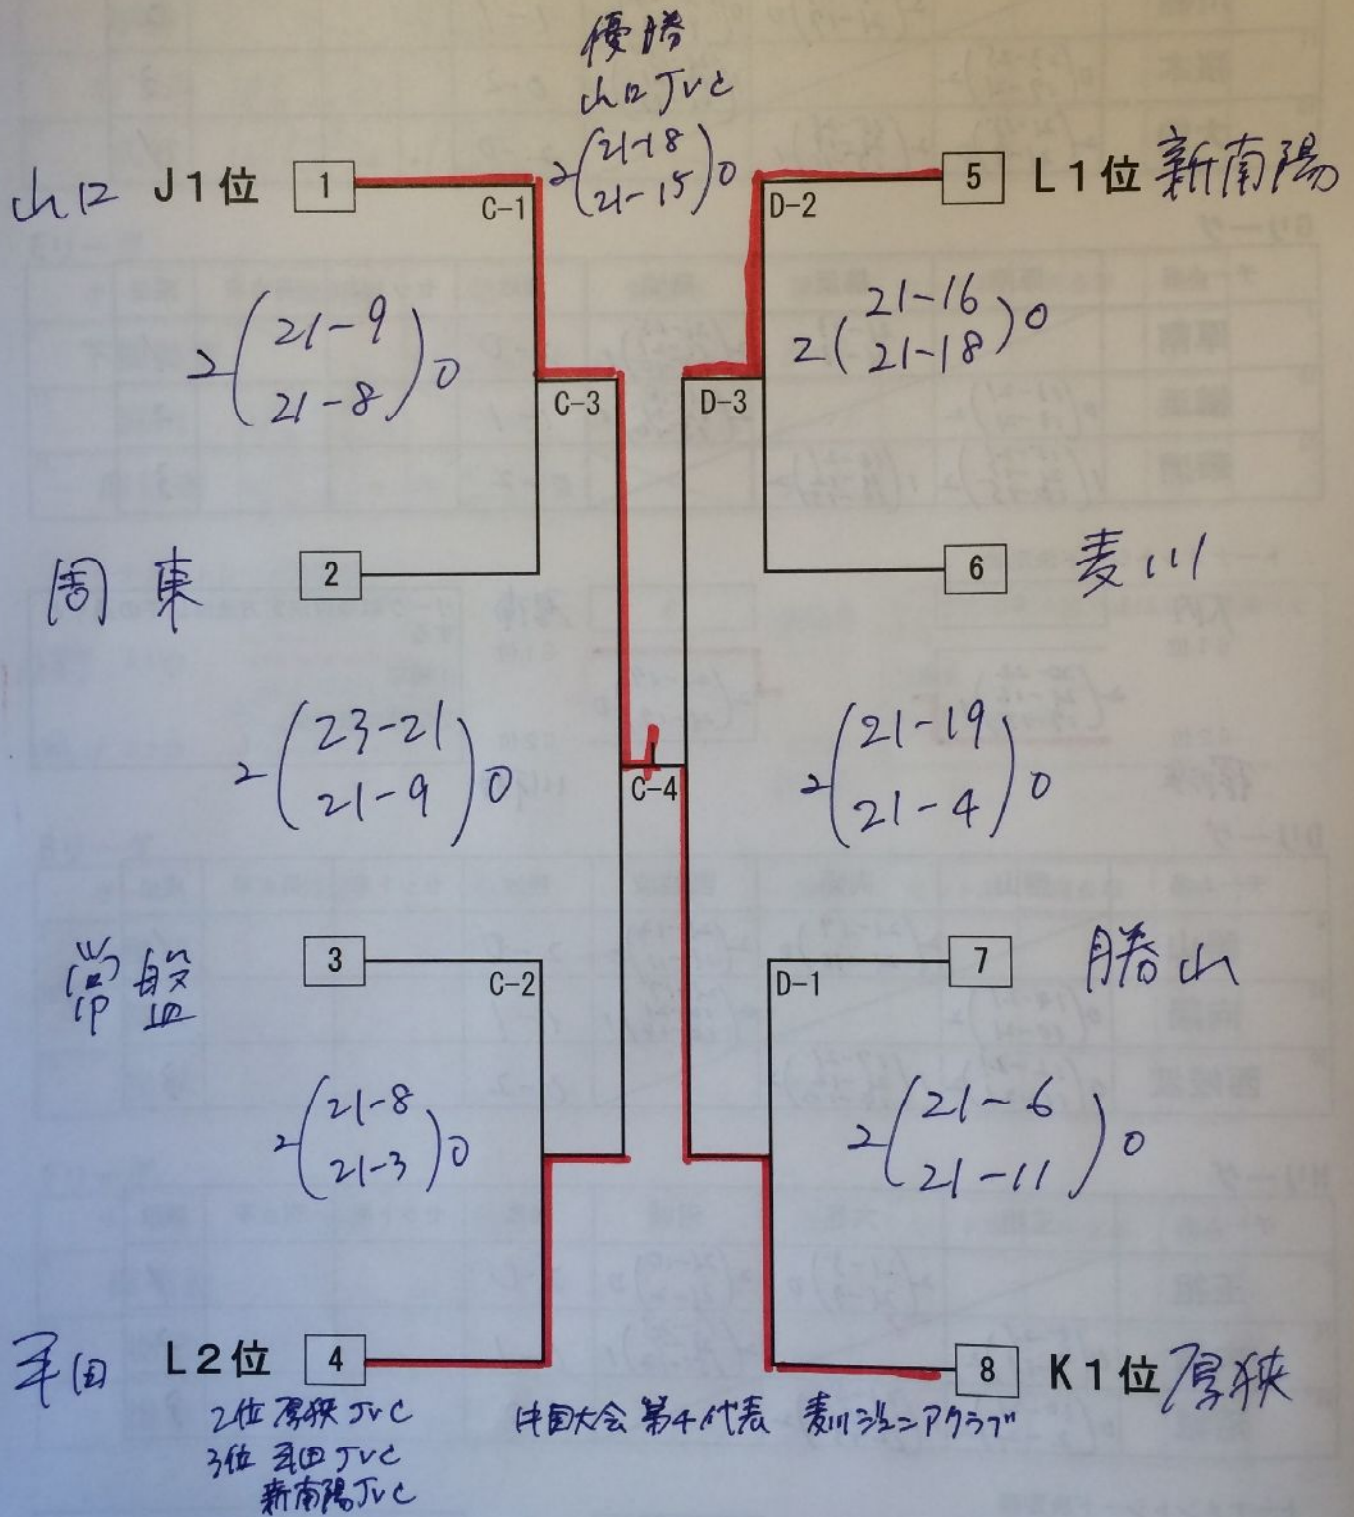 優勝
山口JVC
2(21-18
21-15)0
山口 J1位 1
C-1
D-2
5 L1位 新南陽
2(21-9
21-8)0
21-16
2(21-18)0
C-3
D-3
周東 2
6 麦川
2(23-21
21-9)0
C-4
2(21-19
21-4)0
常盤 3
C-2
D-1
7 勝山
2(21-8
21-3)0
2(21-6
21-11)0
L2位 4
8 K1位 厚狭
2位 厚狭JVC
3位 JVC
新南陽JVC
中国大会 第4代表 麦川ジュニアクラブ